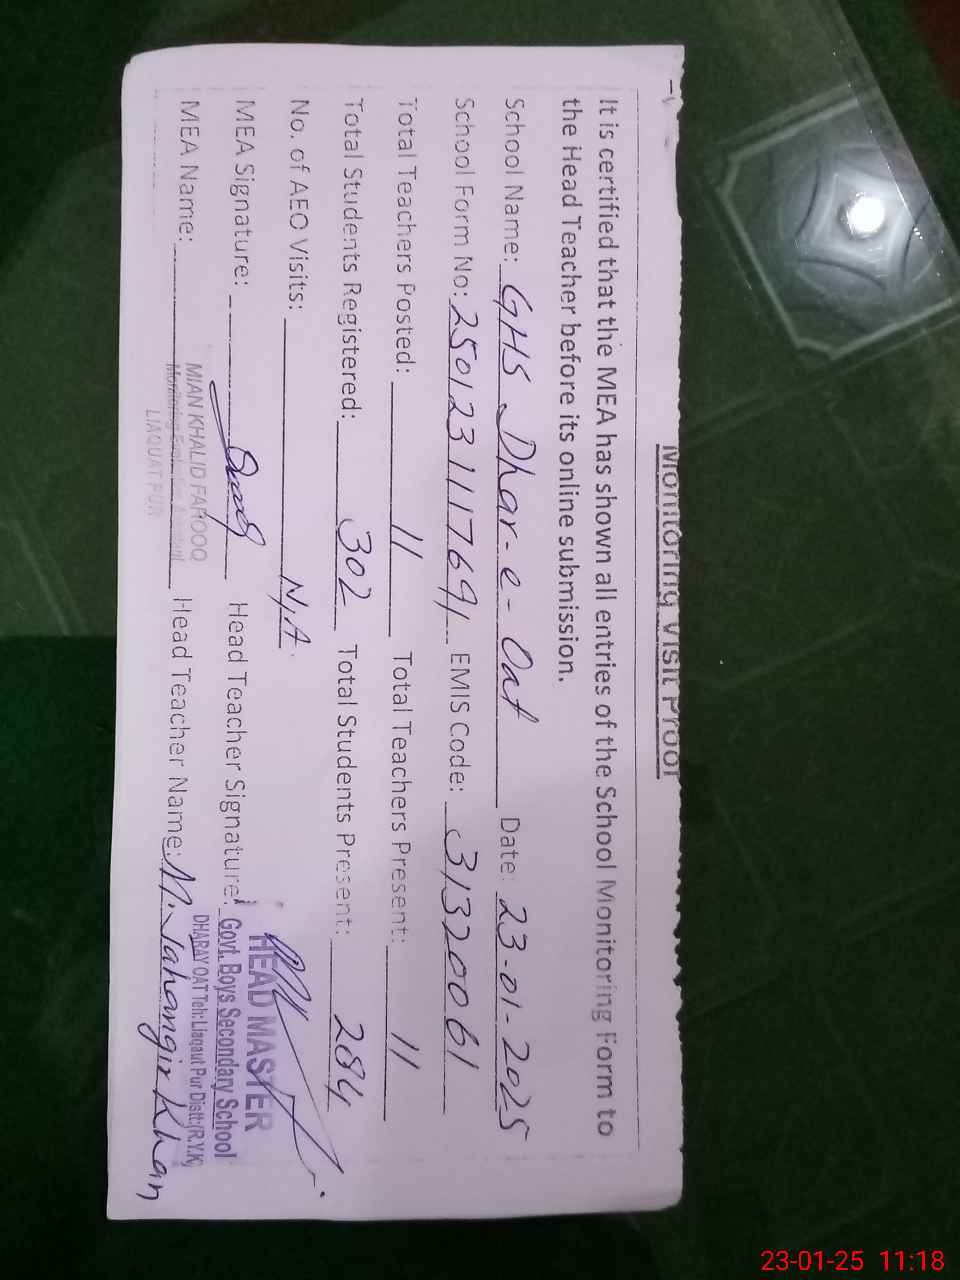 Monitoring Visit Proof
It is certified that the MEA has shown all entries of the School Monitoring Form to
the Head Teacher before its online submission.
School Name: GHS Dhar-e-Oat Date: 23-01-2025
School Form No: 2501231117691 EMIS Code: 31320061
Total Teachers Posted: 11 Total Teachers Present: 11
Total Students Registered: 302 Total Students Present: 284
No. of AEO Visits: N.A
MEA Signature: Head Teacher Signature:
HEAD MASTER
Govt. Boys Secondary School
DHARAY OAT Teh: Liaqaut Pur Distt:(R.Y.K)
MEA Name: MIAN KHALID FAROOQ Head Teacher Name: M. Jahangir Khan
Monitoring
LIAQUAT PUR
23-01-25 11:18